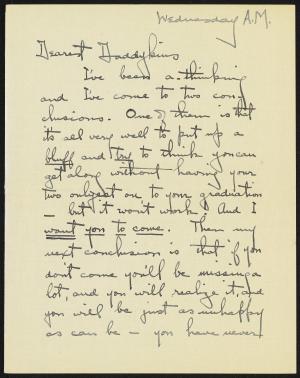 Wednesday A.M.
Dearest Daddykins
I've been a-thinking
and I've come to two con-
clusions. One of them is that
its all very well to put up a
bluff and try to think you can
get along without having your
two onliest on to your graduation
- but it won't work. And I
want you to come. Then my
next conclusion is that if you
don't come you'll be missing a
lot, and you will realize it, and
you will be just as unhappy
as can be - you have never